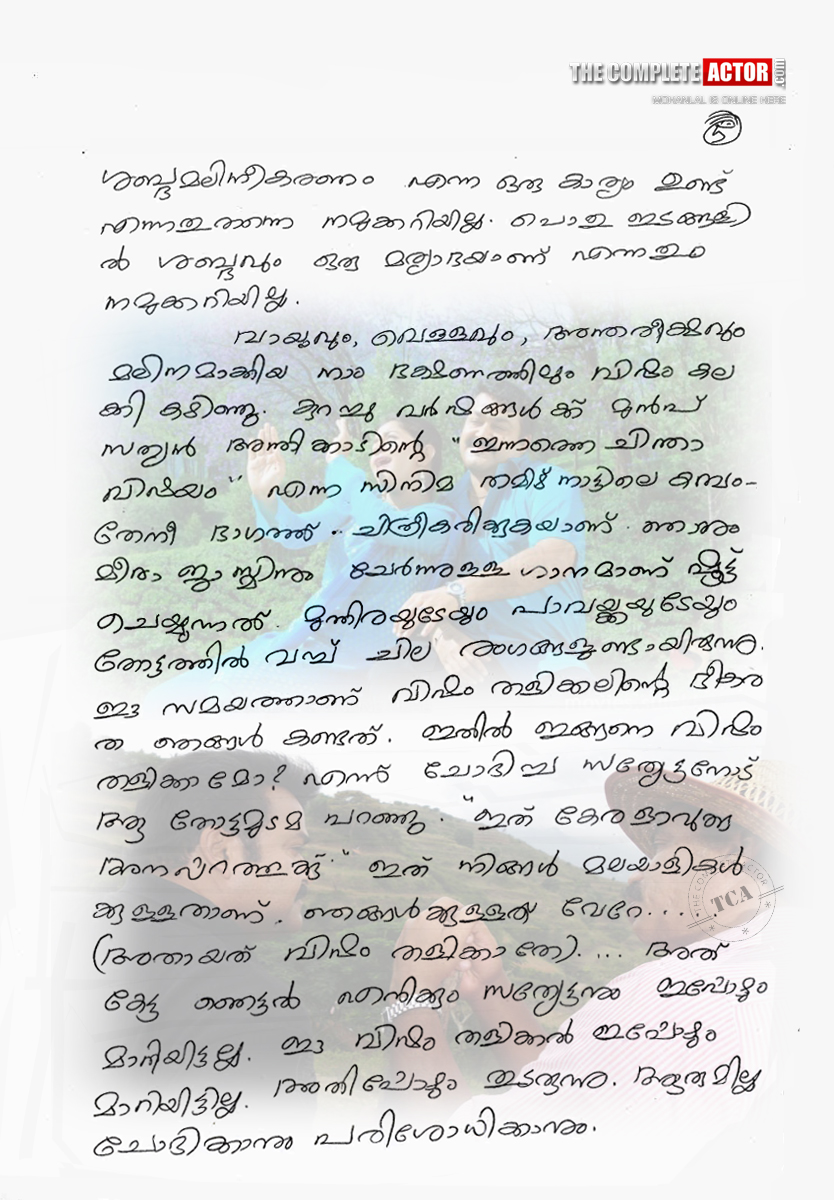 THE COMPLETE ACTOR .COM
MOHANLAL IS ONLINE HERE
5
ശബ്ദമലിനീകരണം എന്ന ഒരു കാര്യം ഉണ്ട്
എന്നതുതന്നെ നമുക്കറിയില്ല. പൊതു ഇടങ്ങളി
ൽ ശബ്ദവും ഒരു മര്യാദയാണ് എന്നതും
നമുക്കറിയില്ല.
വായുവും, വെള്ളവും, അന്തരീക്ഷവും
മലിനമാക്കിയ നാം ഭക്ഷണത്തിലും വിഷം കല
ക്കി കഴിഞ്ഞു. കുറച്ചു വർഷങ്ങൾക്ക് മുൻപ്
സത്യൻ അന്തിക്കാടിന്റെ "ഇന്നത്തെ ചിന്താ
വിഷയം" എന്ന സിനിമ തമിഴ് നാട്ടിലെ കമ്പം-
തേനീ ഭാഗത്ത്.. ചിത്രീകരിക്കുകയാണ്. ഞാനും
മീരാ ജാസ്മിനും ചേർന്നുള്ള ഗാനമാണ് ഷൂട്ട്
ചെയ്യുന്നത്. മുന്തിരയുടേയും പാവയ്ക്കയുടേയും
തോട്ടത്തിൽ വച്ച് ചില രംഗങ്ങളുണ്ടായിരുന്നു.
ഈ സമയത്താണ് വിഷം തളിക്കലിന്റെ ഭീകര
ത ഞങ്ങൾ കണ്ടത്. ഇതിൽ ഇങ്ങനെ വിഷം
തളിക്കാമോ? എന്ന് ചോദിച്ച സത്യേട്ടനോട്
ആ തോട്ടമുടമ പറഞ്ഞു. "ഇത് കേരളാവുക്കു
അനപ്പറത്തുക്ക്." ഇത് നിങ്ങൾ മലയാളികൾ
ക്കുള്ളതാണ്. ഞങ്ങൾക്കുള്ളത് വേറേ.....
(അതായത് വിഷം തളിക്കാതേ).... അത്
കേട്ട ഞെട്ടൽ എനിക്കും സത്യേട്ടനും ഇപ്പോഴും
മാറിയിട്ടില്ല. ഈ വിഷം തളിക്കൽ ഇപ്പോഴും
മാറിയിട്ടില്ല. അതിപ്പോഴും തുടരുന്നു. ആരുമില്ല
ചോദിക്കാനും പരിശോധിക്കാനും.
THE COMPLETE ACTOR
TCA